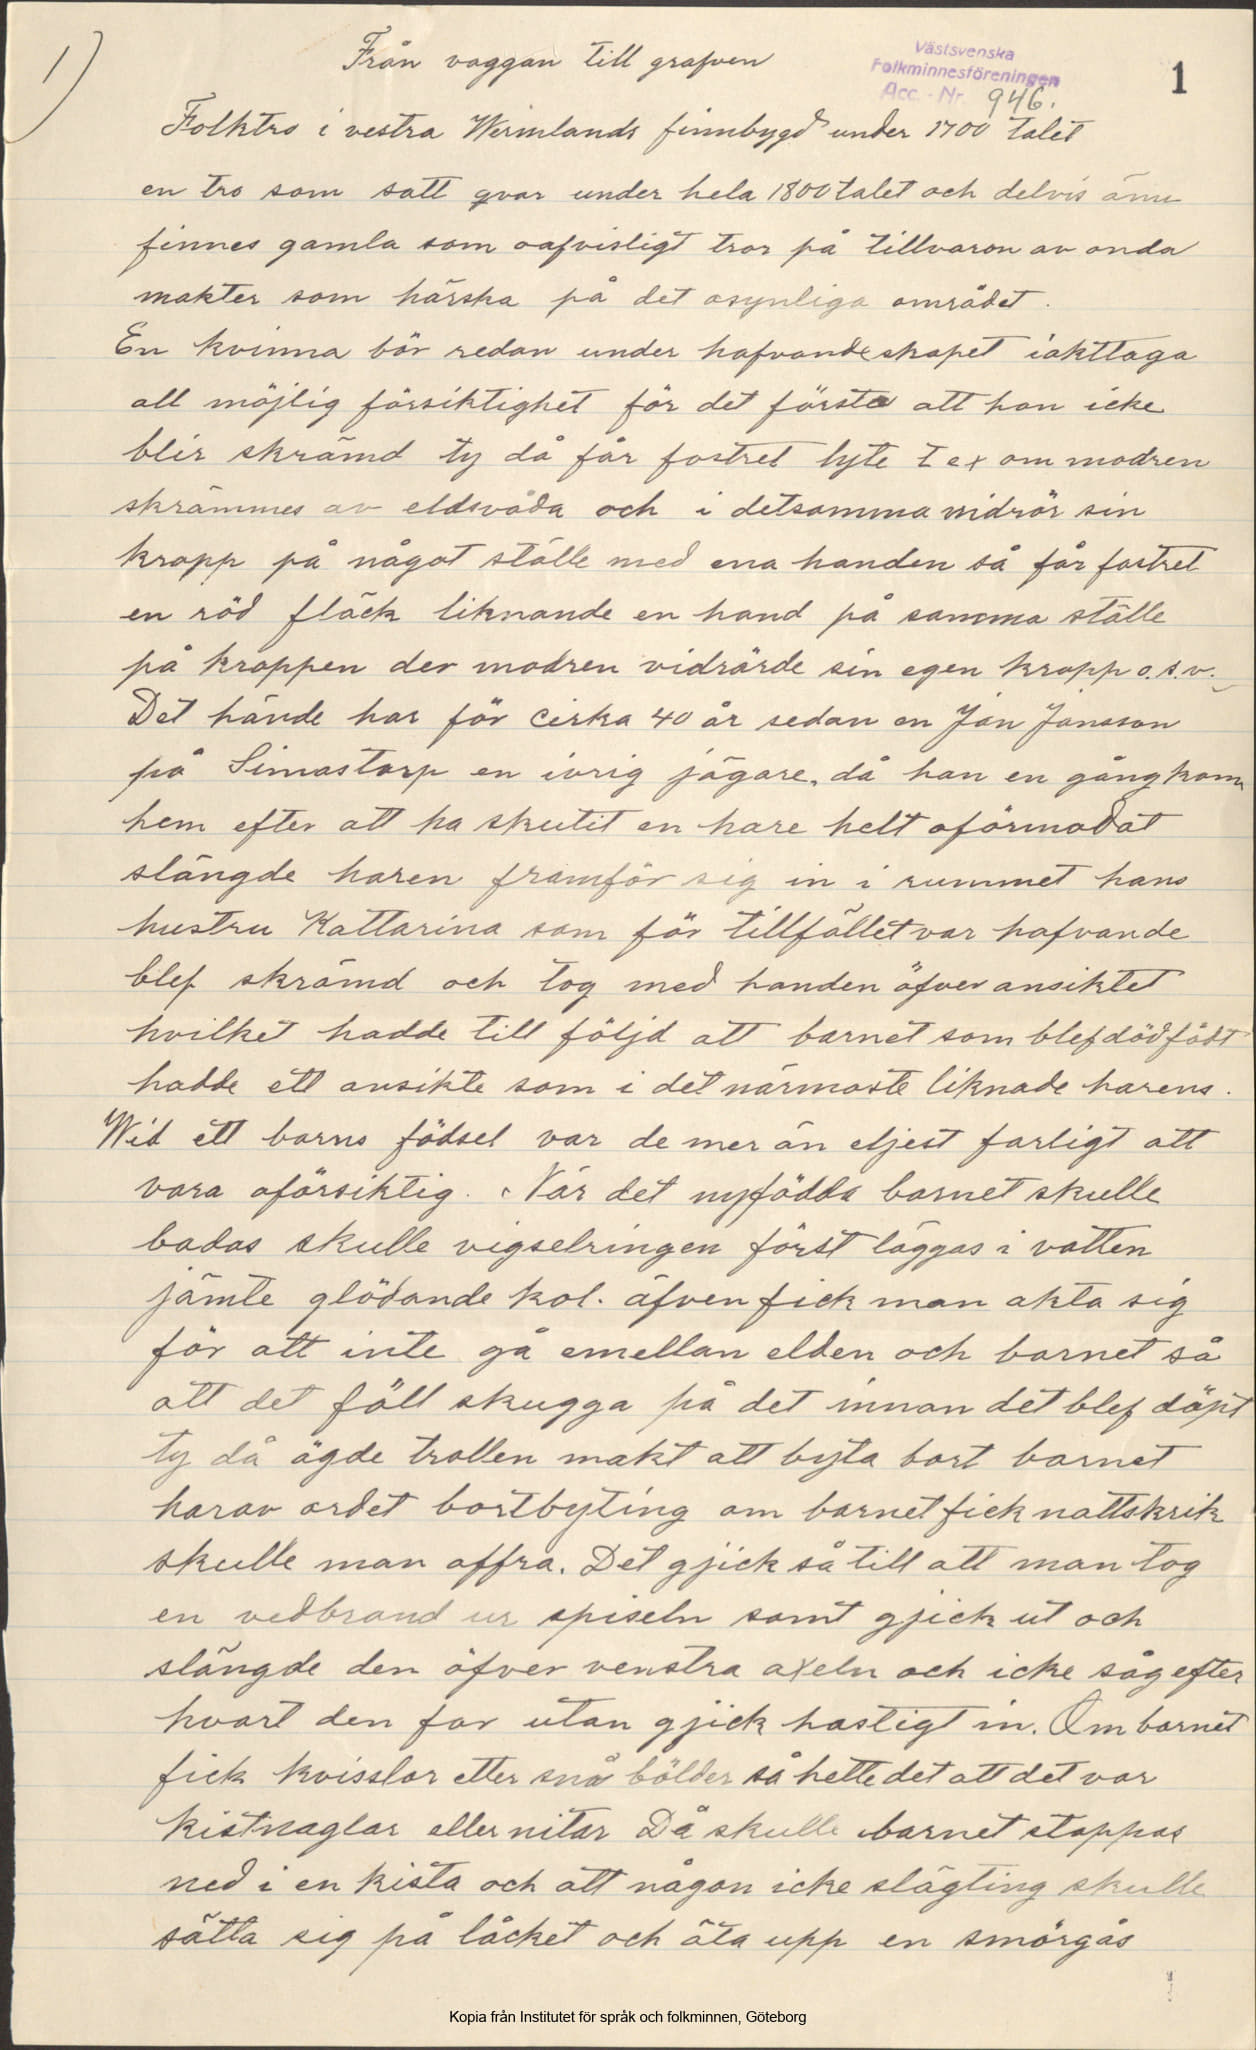 1)
Från vaggan till grafven
Västsvenska
Folkminnesföreningen
Acc. - Nr. 946.
1
Folktro i vestra Wermlands finnbygd under 1700 talet
en tro som satt qvar under hela 1800talet och delvis ännu
finnes gamla som oafvisligt tror på tillvaron av onda
makter som härska på det osynliga området.
En kvinna bör redan under hafvandeskapet iakttaga
all möjlig försiktighet för det första att hon icke
blir skrämd ty då får fostret lyte t ex om modren
skrämmes av eldsvåda och i detsamma vidrör sin
kropp på något ställe med ena handen så får fostret
en röd fläck liknande en hand på samma ställe
på kroppen der modren vidrörde sin egen kropp o.s.v.
Det hände har för cirka 40 år sedan en Jan Jansson
på Simastorp en ivrig jägare, då han en gång kom
hem efter att ha skutit en hare helt oförmodat
slängde haren framför sig in i rummet hans
hustru Kattarina som för tillfället var hafvande
blef skrämd och tog med handen öfver ansiktet
hvilket hadde till följd att barnet som blef dödfödt
hadde ett ansikte som i det närmaste liknade harens.
Wid ett barns födsel var de mer än eljest farligt att
vara oförsiktig. När det nyfödda barnet skulle
badas skulle vigselringen först läggas i vatten
jämte glödande kol. äfven fick man akta sig
för att inte gå emellan elden och barnet så
att det föll skugga på det innan det blef döpt
ty då ägde trollen makt att byta bort barnet
harav ordet bortbyting om barnet fick nattskrik
skulle man offra. Det gjick så till att man tog
en vedbrand ur spiseln samt gjick ut och
slängde den öfver venstra axeln och icke såg efter
hvart den far utan gjick hastigt in. Om barnet
fick kvisslor etter små bölder så hette det att det var
kistnaglar eller nitar Då skulle barnet stoppas
ned i en kista och att någon icke slägting skulle
sätta sig på låcket och äta upp en smörgås
Kopia från Institutet för språk och folkminnen, Göteborg